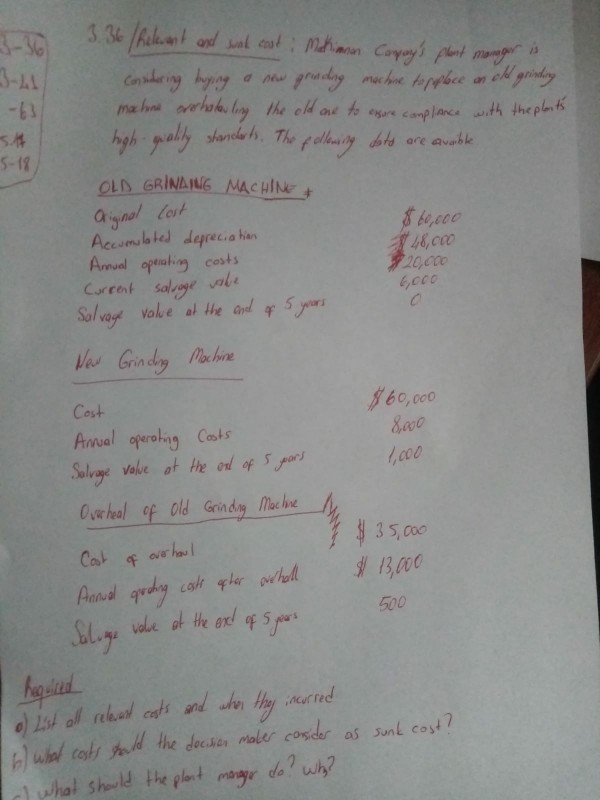 3-36
3-41
-63
5-18
3.36/Relevant and sunk cost: Company's plant manager is
considering buying a new grinding machine to replace an old grinding
machine the old one to ensure compliance with the plant's
high-quality standarts. The following data are avaible
OLD GRINDING MACHINE
Original Cost $60,000
Accumulated depreciation $48,000
Annual operating costs $20,000
Current salvage value 6,000
Salvage value at the end of 5 years 0
New Grinding Machine
Cost $60,000
Annual operating Costs 8,000
Salvage value at the end of 5 years 1,000
Overhaul of Old Grinding Machine
Cost of overhaul $35,000
Annual operating costs after overhall $13,000
Salvage value at the end of 5 years 500
Required
a) List all relevant costs and when they incurred
b) What costs should the decision maker consider as sunk cost?
c) What should the plant manager do? Why?